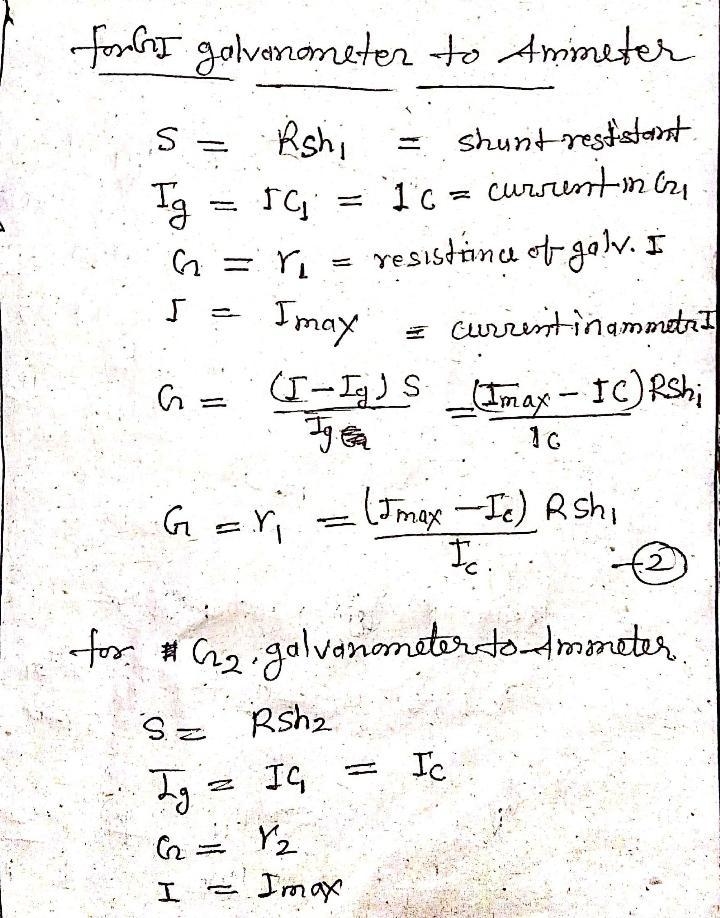 for G1 galvanometer to Ammeter
S = Rsh1 = shunt resistant
Ig = IG = IC = current in G1
G = r1 = resistance of galv. I
I = Imax = current in ammetr I
G = (I-Ig) S / Ig = (Imax - IC) Rsh1 / IC
G = r1 = (Imax - Ic) Rsh1 / Ic. -②
for G2. galvanometer to Ammeter.
S = Rsh2
Ig = IG = Ic
G = r2
I = Imax